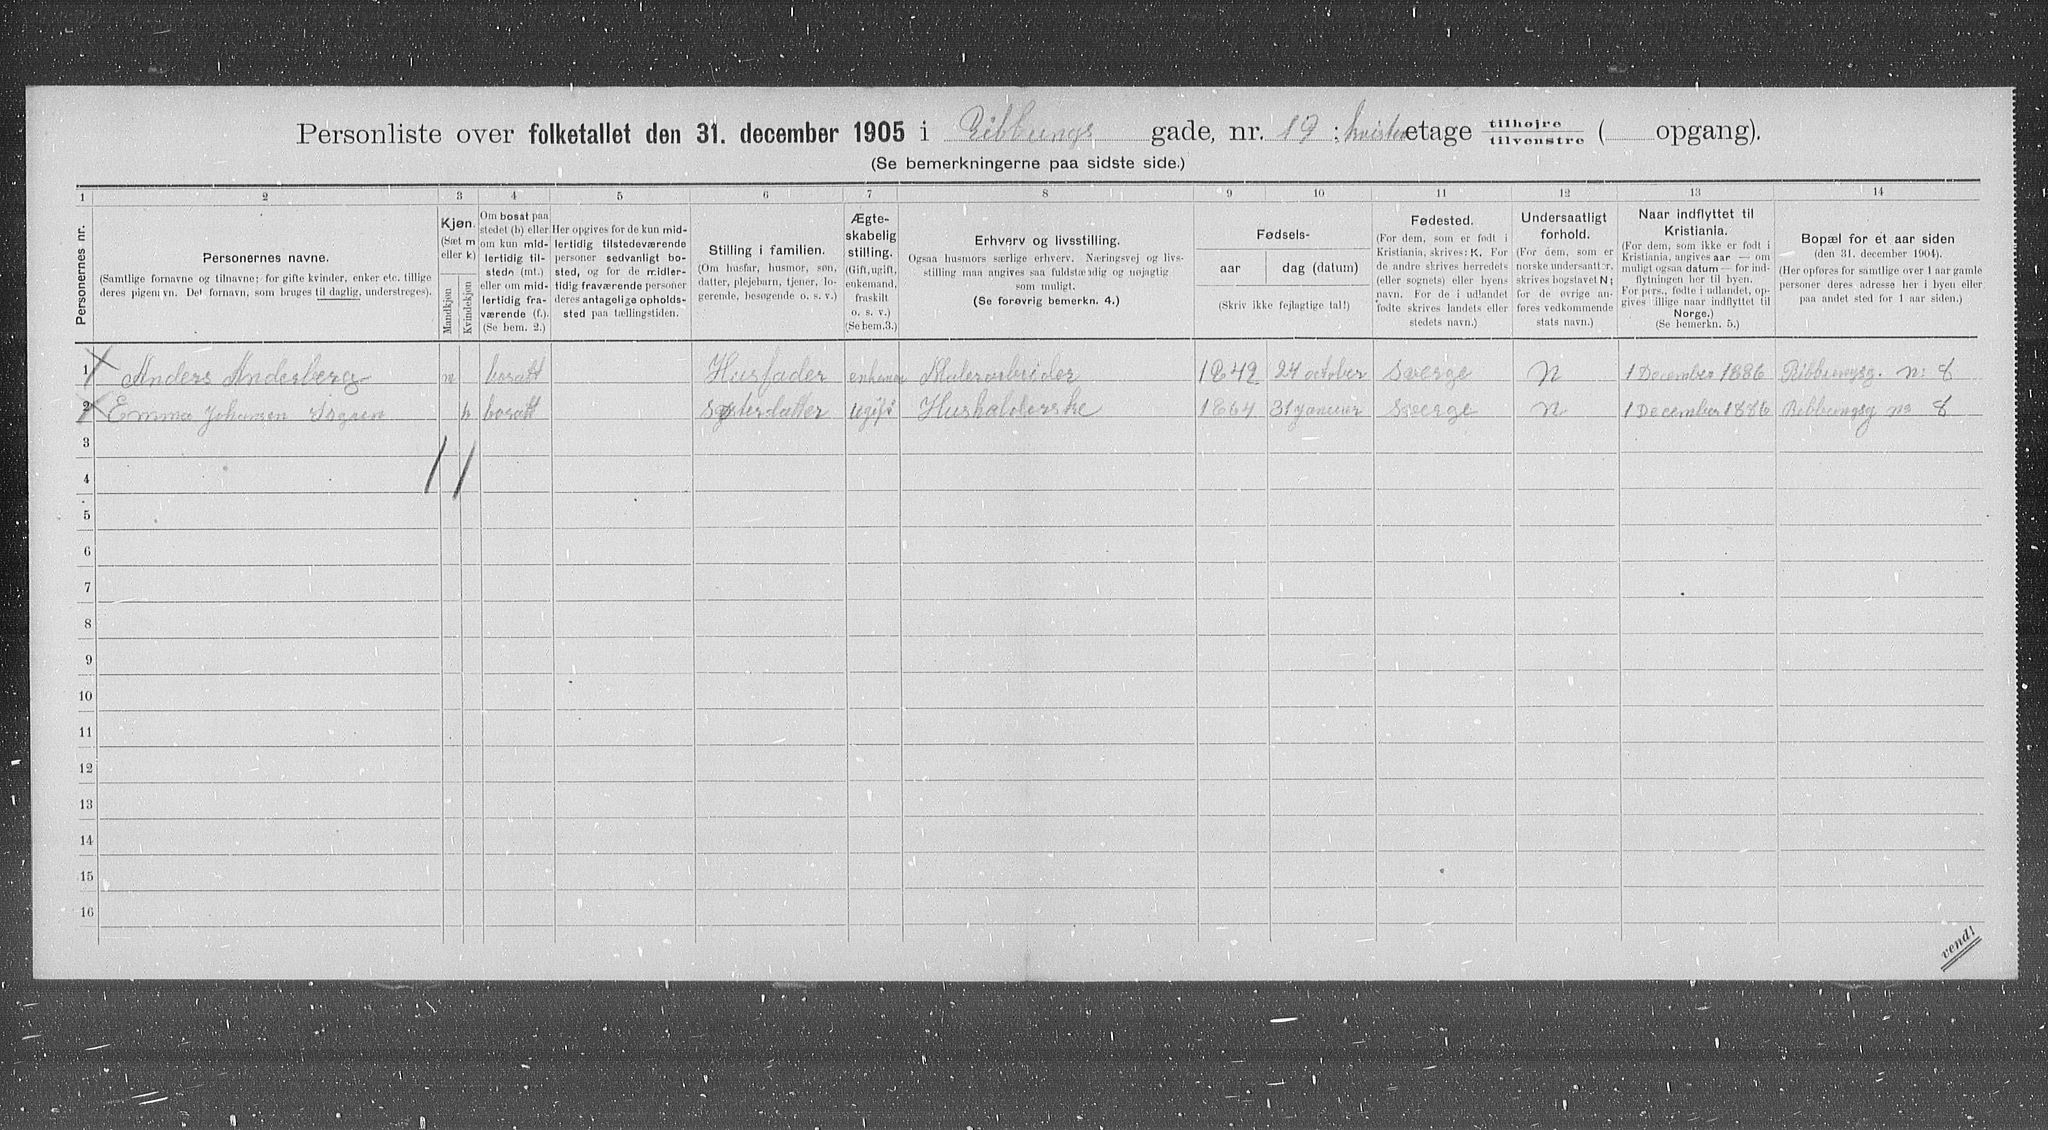 Personliste over folketallet den 31. december 1905 i Ribbungs gade, nr. 19 ; kvisten etage tilhøjre tilvenstre ( opgang).
(Se bemerkningerne paa sidste side.)
1 2 3 4 5 6 7 8 9 10 11 12 13 14
Personernes nr.
Personernes navne.
(Samtlige fornavne og tilnavne; for gifte kvinder, enker etc. tillige
deres pigenavn. Det fornavn, som bruges til daglig, understreges).
Kjøn.
(Sæt m
eller k)
Mandkjøn
Kvindekjøn
Om bosat paa
stedet (b) eller
om kun mid-
lertidig til-
stede (mt.)
eller om mid-
lertidig fra-
værende (f.).
(Se bem. 2.)
Her opgives for de kun mid-
lertidig tilstedeværende
personer sedvanligt bo-
sted, og for de midler-
tidig fraværende personer
deres antagelige opholds-
sted paa tællingstiden.
Stilling i familien.
(Om husfar, husmor, søn,
datter, plejebarn, tjener, lo-
gerende, besøgende o. s. v.)
Ægte-
skabelig
stilling.
(Gift, ugift,
enkemand,
fraskilt
o. s. v.)
(Se bem.3.)
Erhverv og livsstilling.
Ogsaa husmors særlige erhverv. Næringsvej og livs-
stilling maa angives saa fuldstændig og nøjagtig
som muligt.
(Se forøvrig bemerkn. 4.)
Fødsels-
aar
dag (datum)
(Skriv ikke fejlagtige tal!)
Fødested.
(For dem, som er født i
Kristiania, skrives: K. For
de andre skrives herredets
(eller sognets) eller byens
navn. For de i udlandet
fødte skrives landets eller
stedets navn.)
Undersaatligt
forhold.
(For dem, som er
norske undersaatter,
skrives bogstavet N;
for de øvrige an-
føres vedkommende
stats navn.)
Naar indflyttet til
Kristiania.
(For dem, som ikke er født i
Kristiania, angives aar — om
muligt ogsaa datum — for ind-
flytningen her til byen.
For pers., fødte i udlandet, op-
gives tillige naar indflyttet til
Norge.)
(Se bemerkn. 5.)
Bopæl for et aar siden
(den 31. december 1904).
(Her opføres for samtlige over 1 aar gamle
personer deres adresse her i byen eller
paa andet sted for 1 aar siden.)
1 Anders Anderberg m bosatt Husfader enkeman Malerarbeider 1842 24 october Sverge N 1 December 1886 Ribbungsg. n: 8
2 Emma Johansen k bosatt Søsterdatter ugift Husholderske 1864 31 januer Sverge N 1 December 1886 Ribbungsg no 8
3
4
5
6
7
8
9
10
11
12
13
14
15
16
vend!